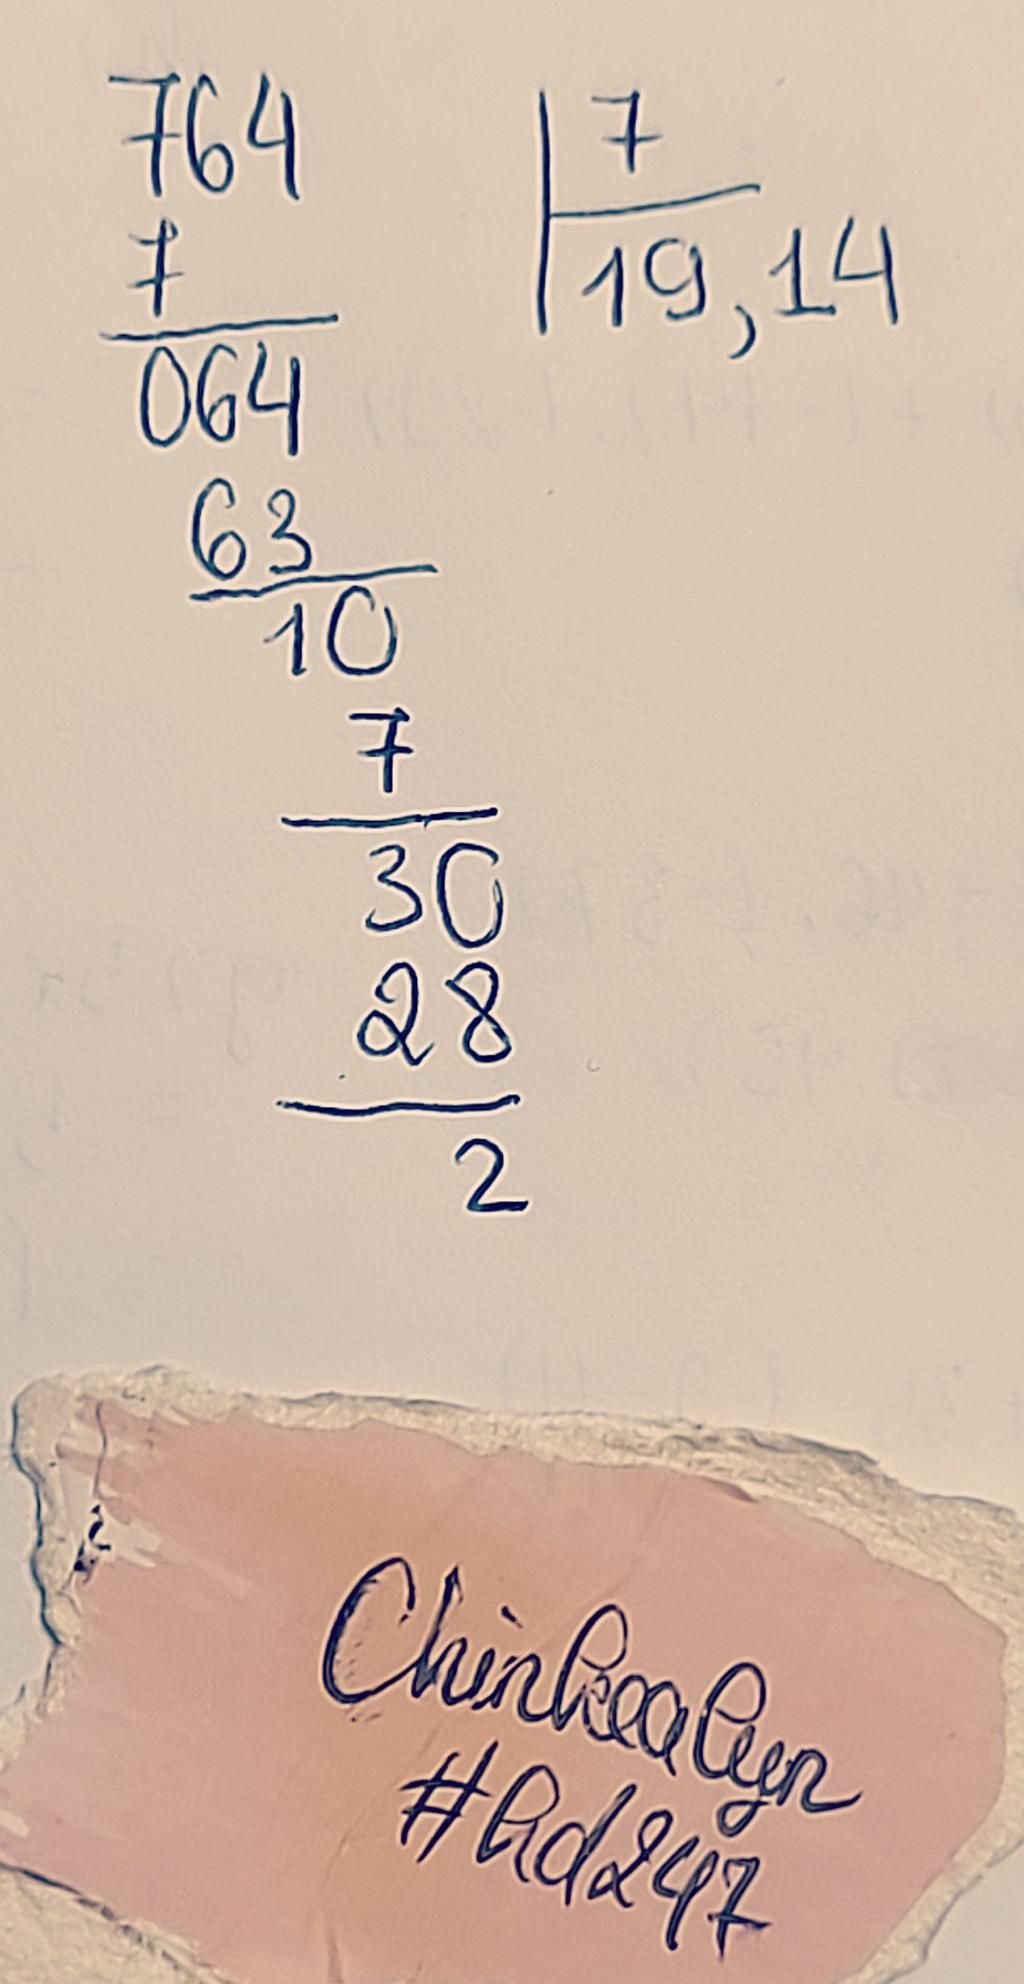 764 7
7 19,14
064
63
10
7
30
28
2
Chinkoalyn
#hd247